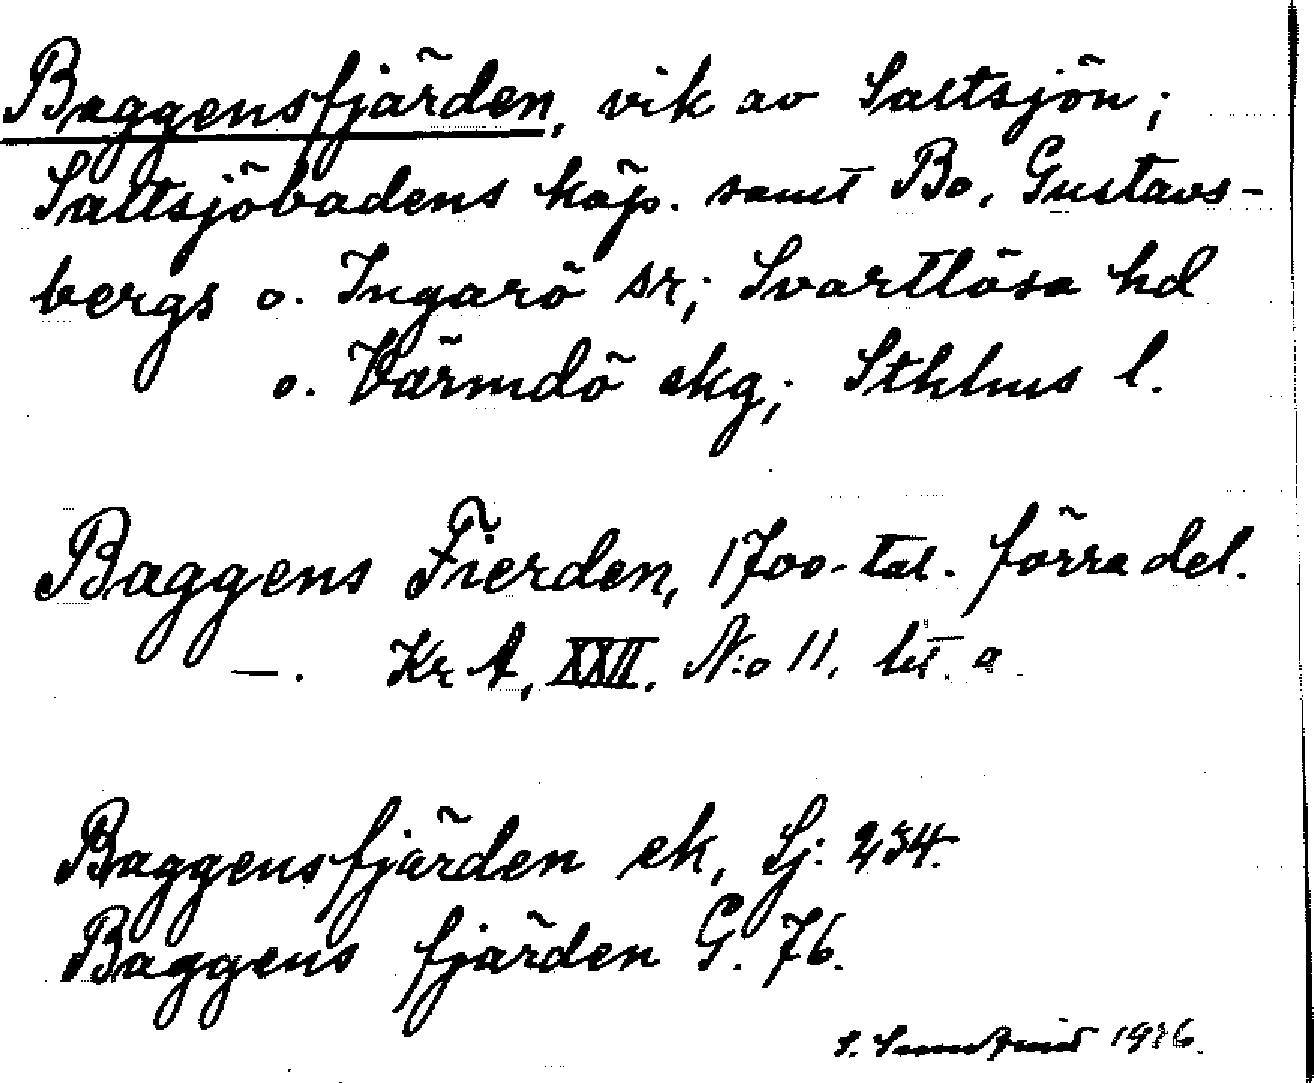 Baggensfjärden, vik av Saltsjön;
Saltsjöbadens köp. samt Bo, Gustavs-
bergs o. Ingarö sr; Svartlösa hd
o. Värmdö skg; Sthlms l.
Baggens Fierden, 1700-tal. förra del.
—. Kr A, XXII. N:o 11. lit. a
Baggensfjärden ek, Lj. 234.
Baggens fjärden G. 76.
S.